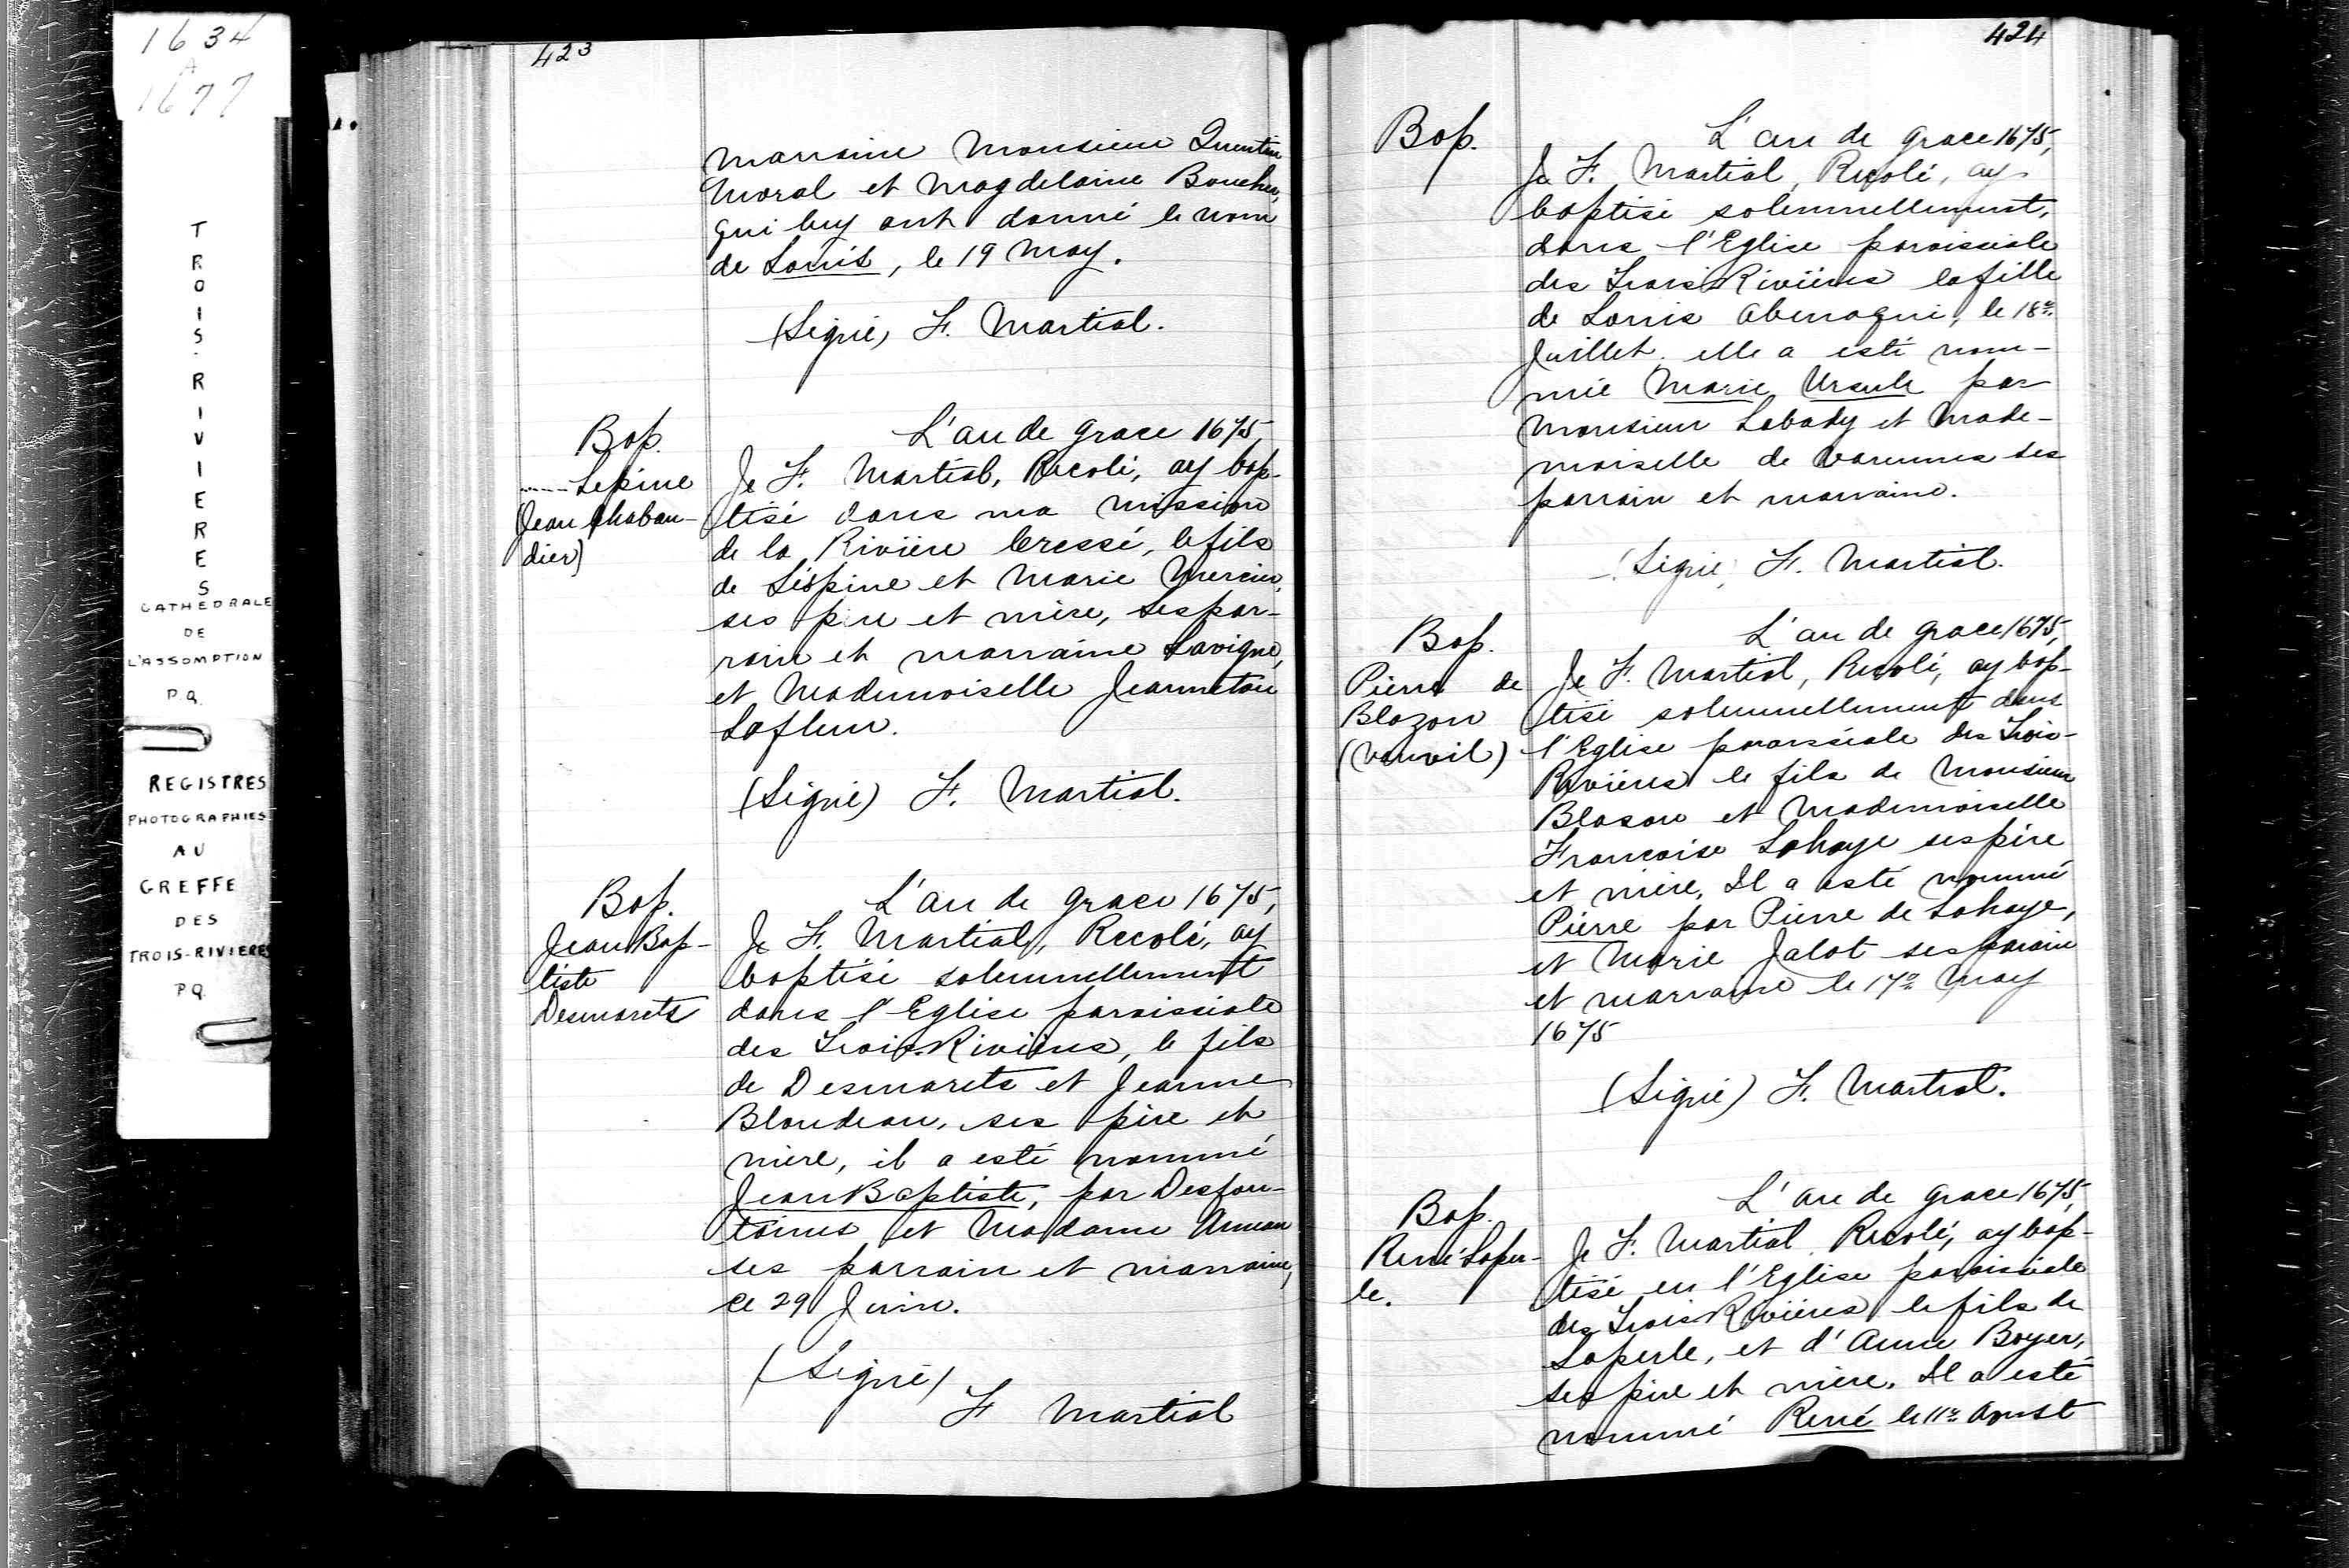 1634
A
1677
TROIS-RIVIERES
CATHEDRALE
DE
L'ASSOMPTION
P.Q.
REGISTRES
PHOTOGRAPHIES
AU
GREFFE
DES
TROIS-RIVIERES
PQ
423
marraine Monsieur Quentin
Moral et Magdelaine Boucher,
qui luy ont donné le nom
de Louis, le 19 May.
(Signé) F. Martial.
Bap.
Lepine
(Jean Chabau-
dier)
L'an de grace 1675,
Je F. Martial, Recolé, ay bap-
tisé dans ma mission
de la Rivière Cressé, le fils
de Léspine et Marie Mercier,
ses père et mère, ses par-
rain et marraine Lavigne,
et Mademoiselle Jeanneton
Lafleur.
(Signé) F. Martial.
Bap.
Jean Bap-
tiste
Desmarets
L'an de grace 1675,
Je F. Martial, Recolé, ay
baptisé solennellement
dans l'Eglise paroissiale
des Trois-Rivières, le fils
de Desmarets et Jeanne
Blondeau, ses père et
mère, il a esté nommé
Jean Baptiste, par Desfon-
taines et Madame Ameau
ses parrain et marraine,
ce 29 Juin.
(Signé)
F Martial
424
Bap.
L'an de grace 1675,
Je F. Martial, Recolé, ay
baptisé solennellement,
dans l'Eglise paroissiale
des Trois-Rivières la fille
de Louis Abenaqui, le 18e
Juillet. elle a esté nom-
mée Marie Ursule par
Monsieur Labady et Made-
moiselle de Varennes ses
parrain et marraine.
(Signé) F. Martial.
Bap.
Pierre de
Blazon
(Vauvil)
L'an de grace 1675,
Je F. Martial, Recolé, ay bap-
tisé solennellement dans
l'Eglise paroissiale des Trois-
Rivières le fils de Monsieur
Blason et Mademoiselle
Francoise Lahaye ses père
et mère, Il a esté nommé
Pierre par Pierre de Lahaye,
et Marie Jalot ses parain
et marraine le 17e May
1675
(Signé) F. Martial.
Bap.
René Laper-
le.
L'an de grace 1675,
Je F. Martial Recolé, ay bap-
tisé en l'Eglise paroissiale
des Trois Rivières le fils de
Laperle, et d'Anne Boyer,
ses père et mère. Il a esté
nommé René le 11e Aoust